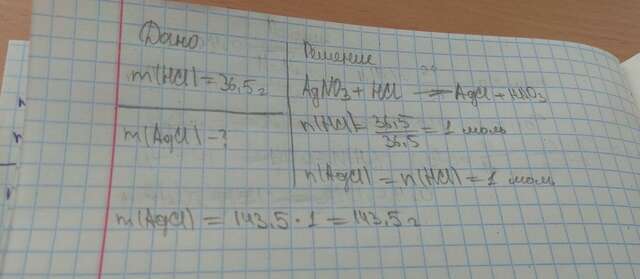 Дано
m(HCl) = 36,5 г
m(AgCl) - ?
Решение
AgNO3 + HCl = AgCl + HNO3
n(HCl) = 36,5/36,5 = 1 моль
n(AgCl) = n(HCl) = 1 моль
m(AgCl) = 143,5 · 1 = 143,5 г